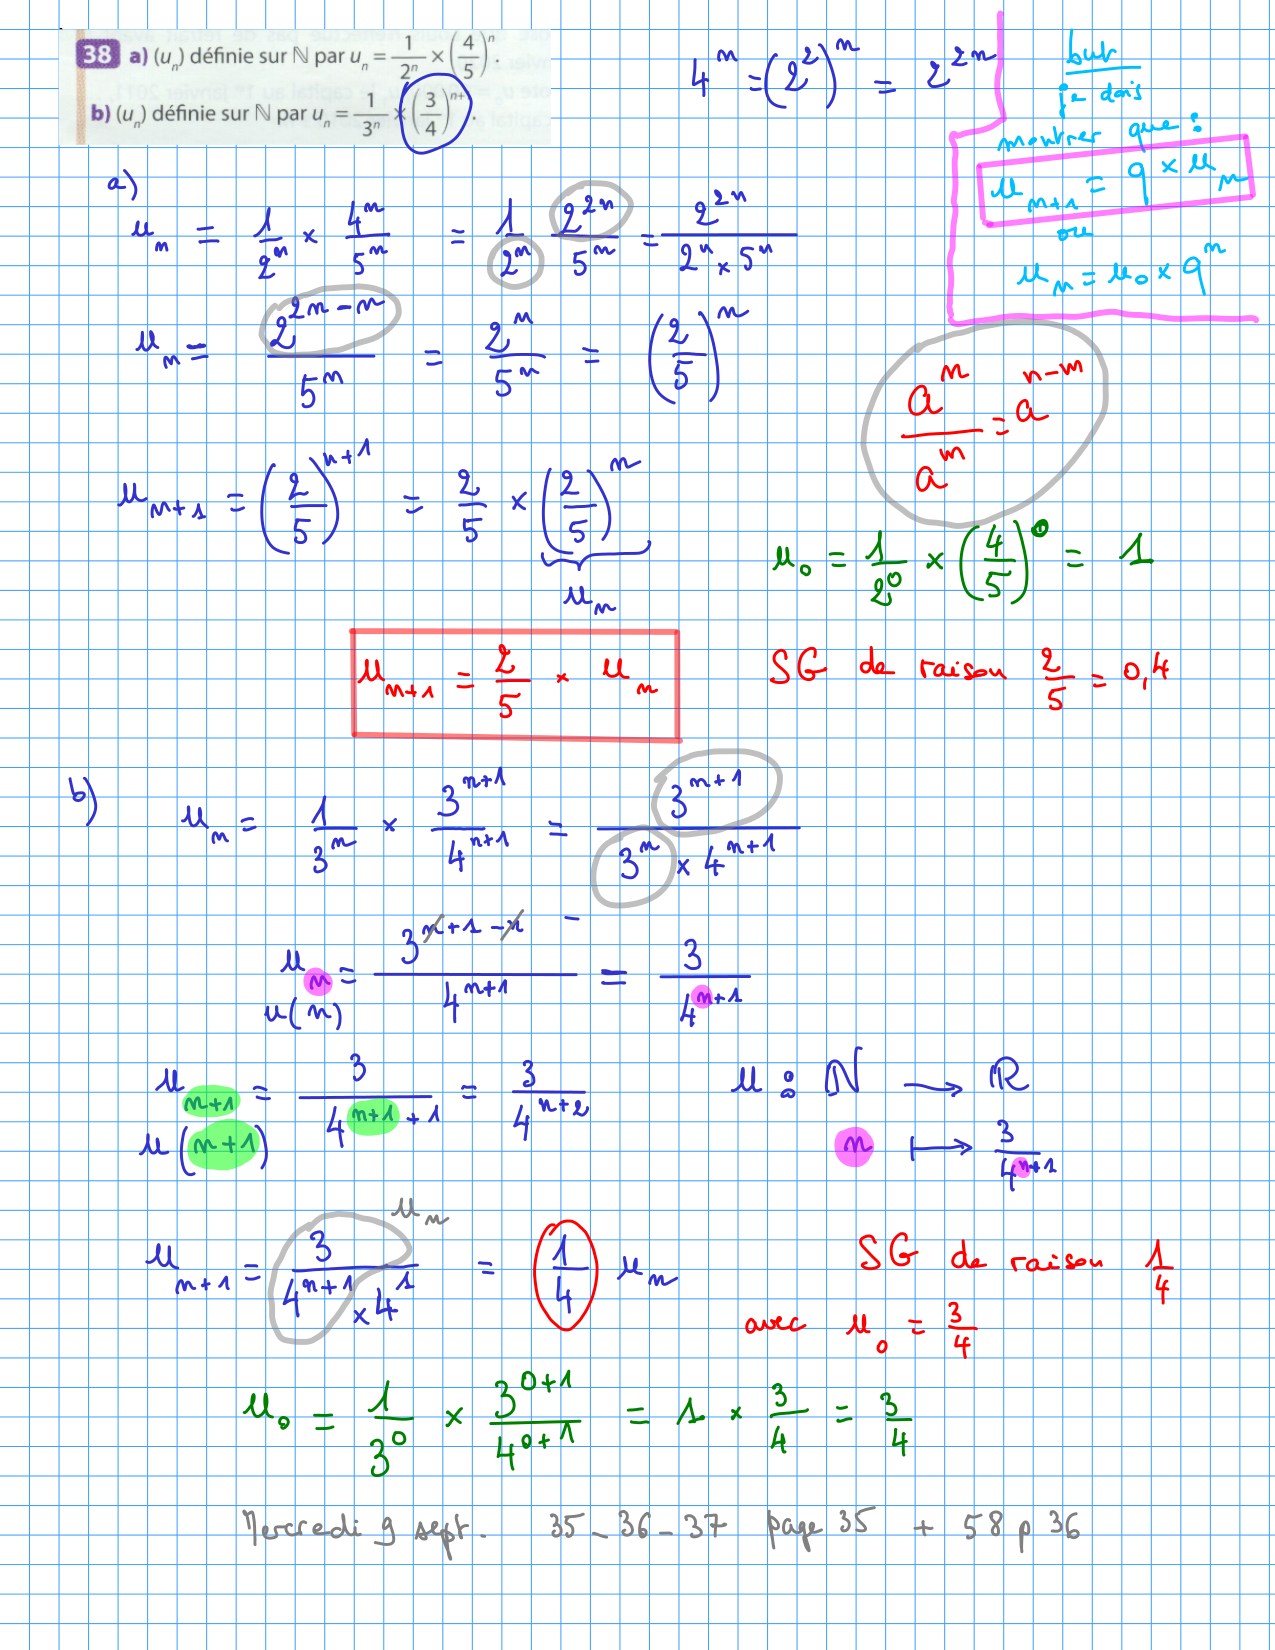 38 a) (uₙ) définie sur ℕ par uₙ = 1/2ⁿ × (4/5)ⁿ.
b) (uₙ) définie sur ℕ par uₙ = 1/3ⁿ × (3/4)ⁿ⁺.
4ⁿ = (2²)ⁿ = 2²ⁿ
but
je dois
montrer que :
uₙ₊₁ = q × uₙ
ou
uₙ = u₀ × qⁿ
a)
uₙ = 1/2ⁿ × 4ⁿ/5ⁿ = 1/2ⁿ 2²ⁿ/5ⁿ = 2²ⁿ/(2ⁿ × 5ⁿ)
uₙ = 2²ⁿ⁻ⁿ/5ⁿ = 2ⁿ/5ⁿ = (2/5)ⁿ
aⁿ/aᵐ = aⁿ⁻ᵐ
uₙ₊₁ = (2/5)ⁿ⁺¹ = 2/5 × (2/5)ⁿ
uₙ
u₀ = 1/2⁰ × (4/5)⁰ = 1
uₙ₊₁ = 2/5 × uₙ
SG de raison 2/5 = 0,4
b)
uₙ = 1/3ⁿ × 3ⁿ⁺¹/4ⁿ⁺¹ = 3ⁿ⁺¹/(3ⁿ × 4ⁿ⁺¹)
uₙ = 3ⁿ⁺¹⁻ⁿ/4ⁿ⁺¹ = 3/4ⁿ⁺¹
u(n)
uₙ₊₁ = 3/4ⁿ⁺¹⁺¹ = 3/4ⁿ⁺²
u(n+1)
u : ℕ ⟶ ℝ
n ⟼ 3/4ⁿ⁺¹
uₙ
uₙ₊₁ = 3/(4ⁿ⁺¹ × 4¹) = 1/4 uₙ
SG de raison 1/4
avec u₀ = 3/4
u₀ = 1/3⁰ × 3⁰⁺¹/4⁰⁺¹ = 1 × 3/4 = 3/4
Mercredi 9 sept. 35 - 36 - 37 page 35 + 58 p 36